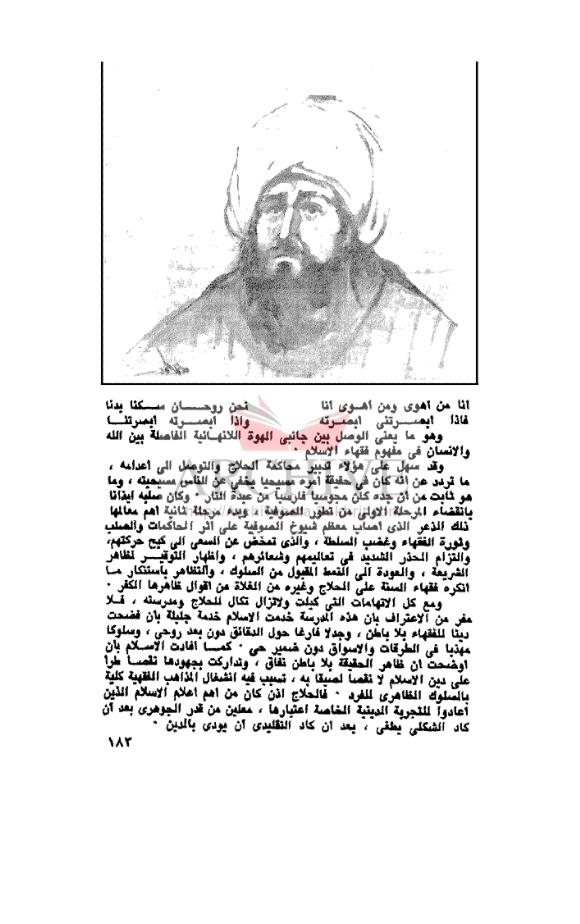 أنا من أهوى ومن أهـوى أنا نحن روحـــان ســكنا بدنا
فاذا أبصــرتنى أبصـرته واذا أبصــرته أبصرتنــا
وهو ما يعنى الوصل بين جانبى الهوة اللانهـائية الفاصلة بين الله
والانسان فى مفهوم فقهاء الاسلام ٠
ARCHIVE
وقد سهل على هؤلاء تدبير محاكمة الحلاج والتوصل الى اعدامه ،
ما تردد عن أنه كان فى حقيقة أمره مسيحيا يخفى عن الناس مسيحيته ، وما
هو ثابت من أن جده كان مجوسيا فارسيا من عبدة النار ٠ وكان صلبه ايذانا
بانقضاء المرحلة الأولى من تطور الصوفية ، وبدء مرحلة ثانية أهم معالمها
ذلك الذعر الذى أصاب معظم شيوخ الصوفية على أثر المحاكمات والصلب
وثورة الفقهاء وغضب السلطة ، والذى تمخض عن السعى الى كبح حركتهم،
والتزام الحذر الشديد فى تعاليمهم وشعائرهم ، واظهار التوقيــر لظاهر
الشريعة ، والعودة الى النمط المقبول من السلوك ، والتظاهر باستنكار مـا
أنكره فقهاء السنة على الحلاج وغيره من الغلاة عن أقوال ظاهرها الكفر ٠
ومع كل الاتهامات التى كيلت ولاتزال تكال للحلاج ومدرسته ، فــلا
مفر من الاعتراف بأن هذه المدرسة خدمت الاسلام خدمة جليلة بأن فضحت
دينا للفقهاء بلا باطن ، وجدلا فارغا حول الدقائق دون بعد روحى ، وسلوكا
مهذبا فى الطرقات والأسواق دون ضمير حى ٠ كمــا أفادت الاسـلام بأن
أوضحت أن ظاهر الحقيقة بلا باطن نفاق ، وتداركت بجهودها نقصـا طرأ
على دين الاسلام لا نقصا لصيقا به ، تسبب فيه انشغال المذاهب الفقهية كلية
بالسلوك الظاهرى للفرد ٠ فالحلاج اذن كان من أهم أعلام الاسلام الذين
أعادوا للتجربة الدينية الخاصة اعتبارها ، معلين من قدر الجوهرى بعد أن
كاد الشكلى يطغى ، بعد أن كاد التقليدى أن يودى بالدين ٠
١٨٣